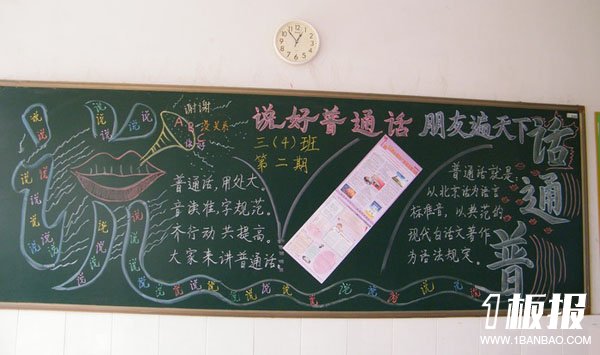 谢谢
A B C
没关系
说好普通话 朋友遍天下
三(4)班
第二期
普通话,用处大,
音读准,字规范。
齐行动 共提高。
大家来讲普通话。
普通话就是
以北京话为语言
标准音,以典范的
现代白话文著作
为语法规定。
话
通
普
说 说 说 说 说 说 说 说 说 说
1板报
WWW.1BANBAO.COM